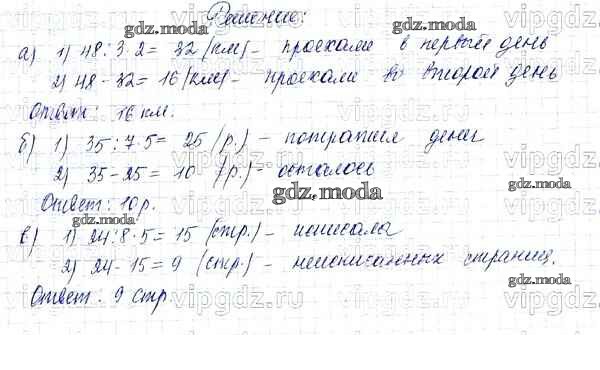 Решение:
а) 1) 48:3·2= 32 (км) - проехали в первый день
2) 48-32= 16 (км) - проехали во второй день
Ответ: 16 км.
б) 1) 35:7·5= 25 (р.) - потратил денег
2) 35-25= 10 (р.) - осталось
Ответ: 10р.
в) 1) 24:8·5= 15 (стр.) - исписала
2) 24-15=9 (стр.) - неисписанных страниц.
Ответ: 9 стр.
gdz.moda
vipgdz.ru